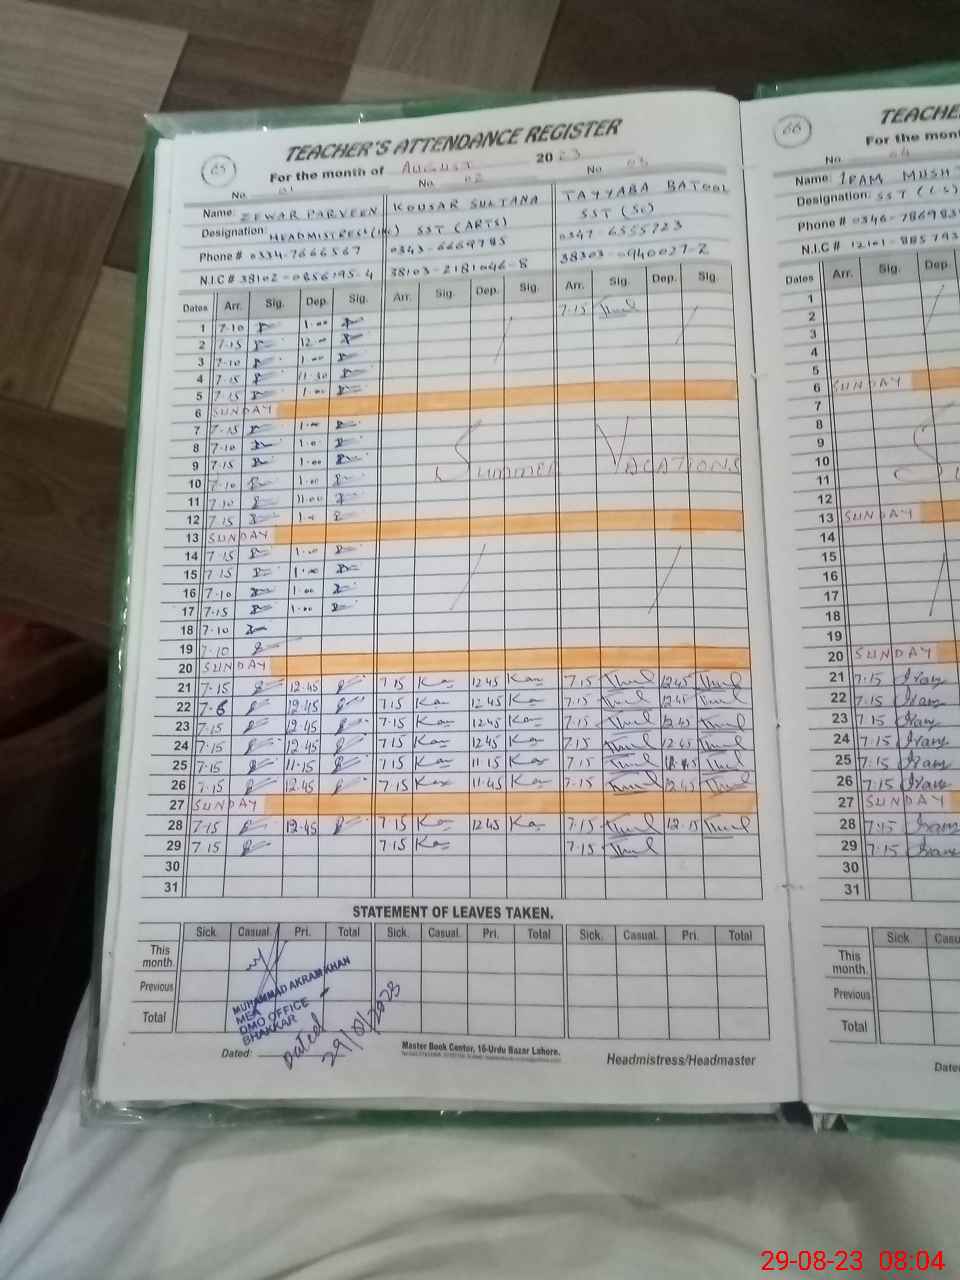 65
TEACHER'S ATTENDANCE REGISTER
For the month of AUGUST 2023
No. 01 No. 02 No. 03
Name: ZEWAR PARVEEN KOUSAR SULTANA TAYYABA BATOOL
Designation: HEADMISTRESS SST (ARTS) SST (SC)
Phone # 0334-7666567 0343-6669785 0347-6555723
N.I.C # 38102-0856795-4 38103-2181046-8 38303-0940027-2
Dates Arr. Sig. Dep. Sig. Arr. Sig. Dep. Sig. Arr. Sig. Dep. Sig.
1 7-10 1-00 7-15
2 7-15 12-00
3 7-10 1-00
4 7-15 11-30
5 7-15 1-00
6 SUNDAY
7 7-15 1-00
8 7-10 1-00
9 7-15 1-00 SUMMER VACATIONS
10 7-10 1-00
11 7-10 11-00
12 7-15 1-00
13 SUNDAY
14 7-15 1-00
15 7-15 1-00
16 7-10 1-00
17 7-15 1-00
18 7-10
19 7-10
20 SUNDAY
21 7-15 12-45 7-15 1245 7-15 1245
22 12-45 7-15 12-45 7-15 12-45
23 7-15 12-45 7-15 1245 7-15 1245
24 7-15 12-45 7-15 1245 7-15 12-45
25 7-15 11-15 7-15 11-15 7-15
26 7-15 12-45 7-15 11-45 7-15 12-45
27 SUNDAY
28 7-15 12-45 7-15 1245 7-15 12-15
29 7-15 7-15 7-15
30
31
STATEMENT OF LEAVES TAKEN.
Sick. Casual. Pri. Total Sick. Casual. Pri. Total Sick. Casual. Pri. Total
This month.
Previous
Total
MUHAMMAD AKRAM KHAN
MEA
DMO OFFICE
BHAKKAR
Dated
29/08/2023
Dated:
Master Book Center, 16-Urdu Bazar Lahore.
Headmistress/Headmaster
66
TEACHE
For the mont
No. 04
Name: IRAM MUSHT
Designation: SST (CS)
Phone # 0346-786983
N.I.C # 12101-885793
Dates Arr. Sig. Dep.
1
2
3
4
5
6 SUNDAY
7
8
9
10
11
12
13 SUNDAY
14
15
16
17
18
19
20 SUNDAY
21 7-15 Iram
22 7-15 Iram
23 7-15 Iram
24 7-15 Iram
25 7-15 Iram
26 7-15 Iram
27 SUNDAY
28 7-15 Iram
29 7-15 Iram
30
31
Sick Casu
This month.
Previous
Total
Date
29-08-23 08:04